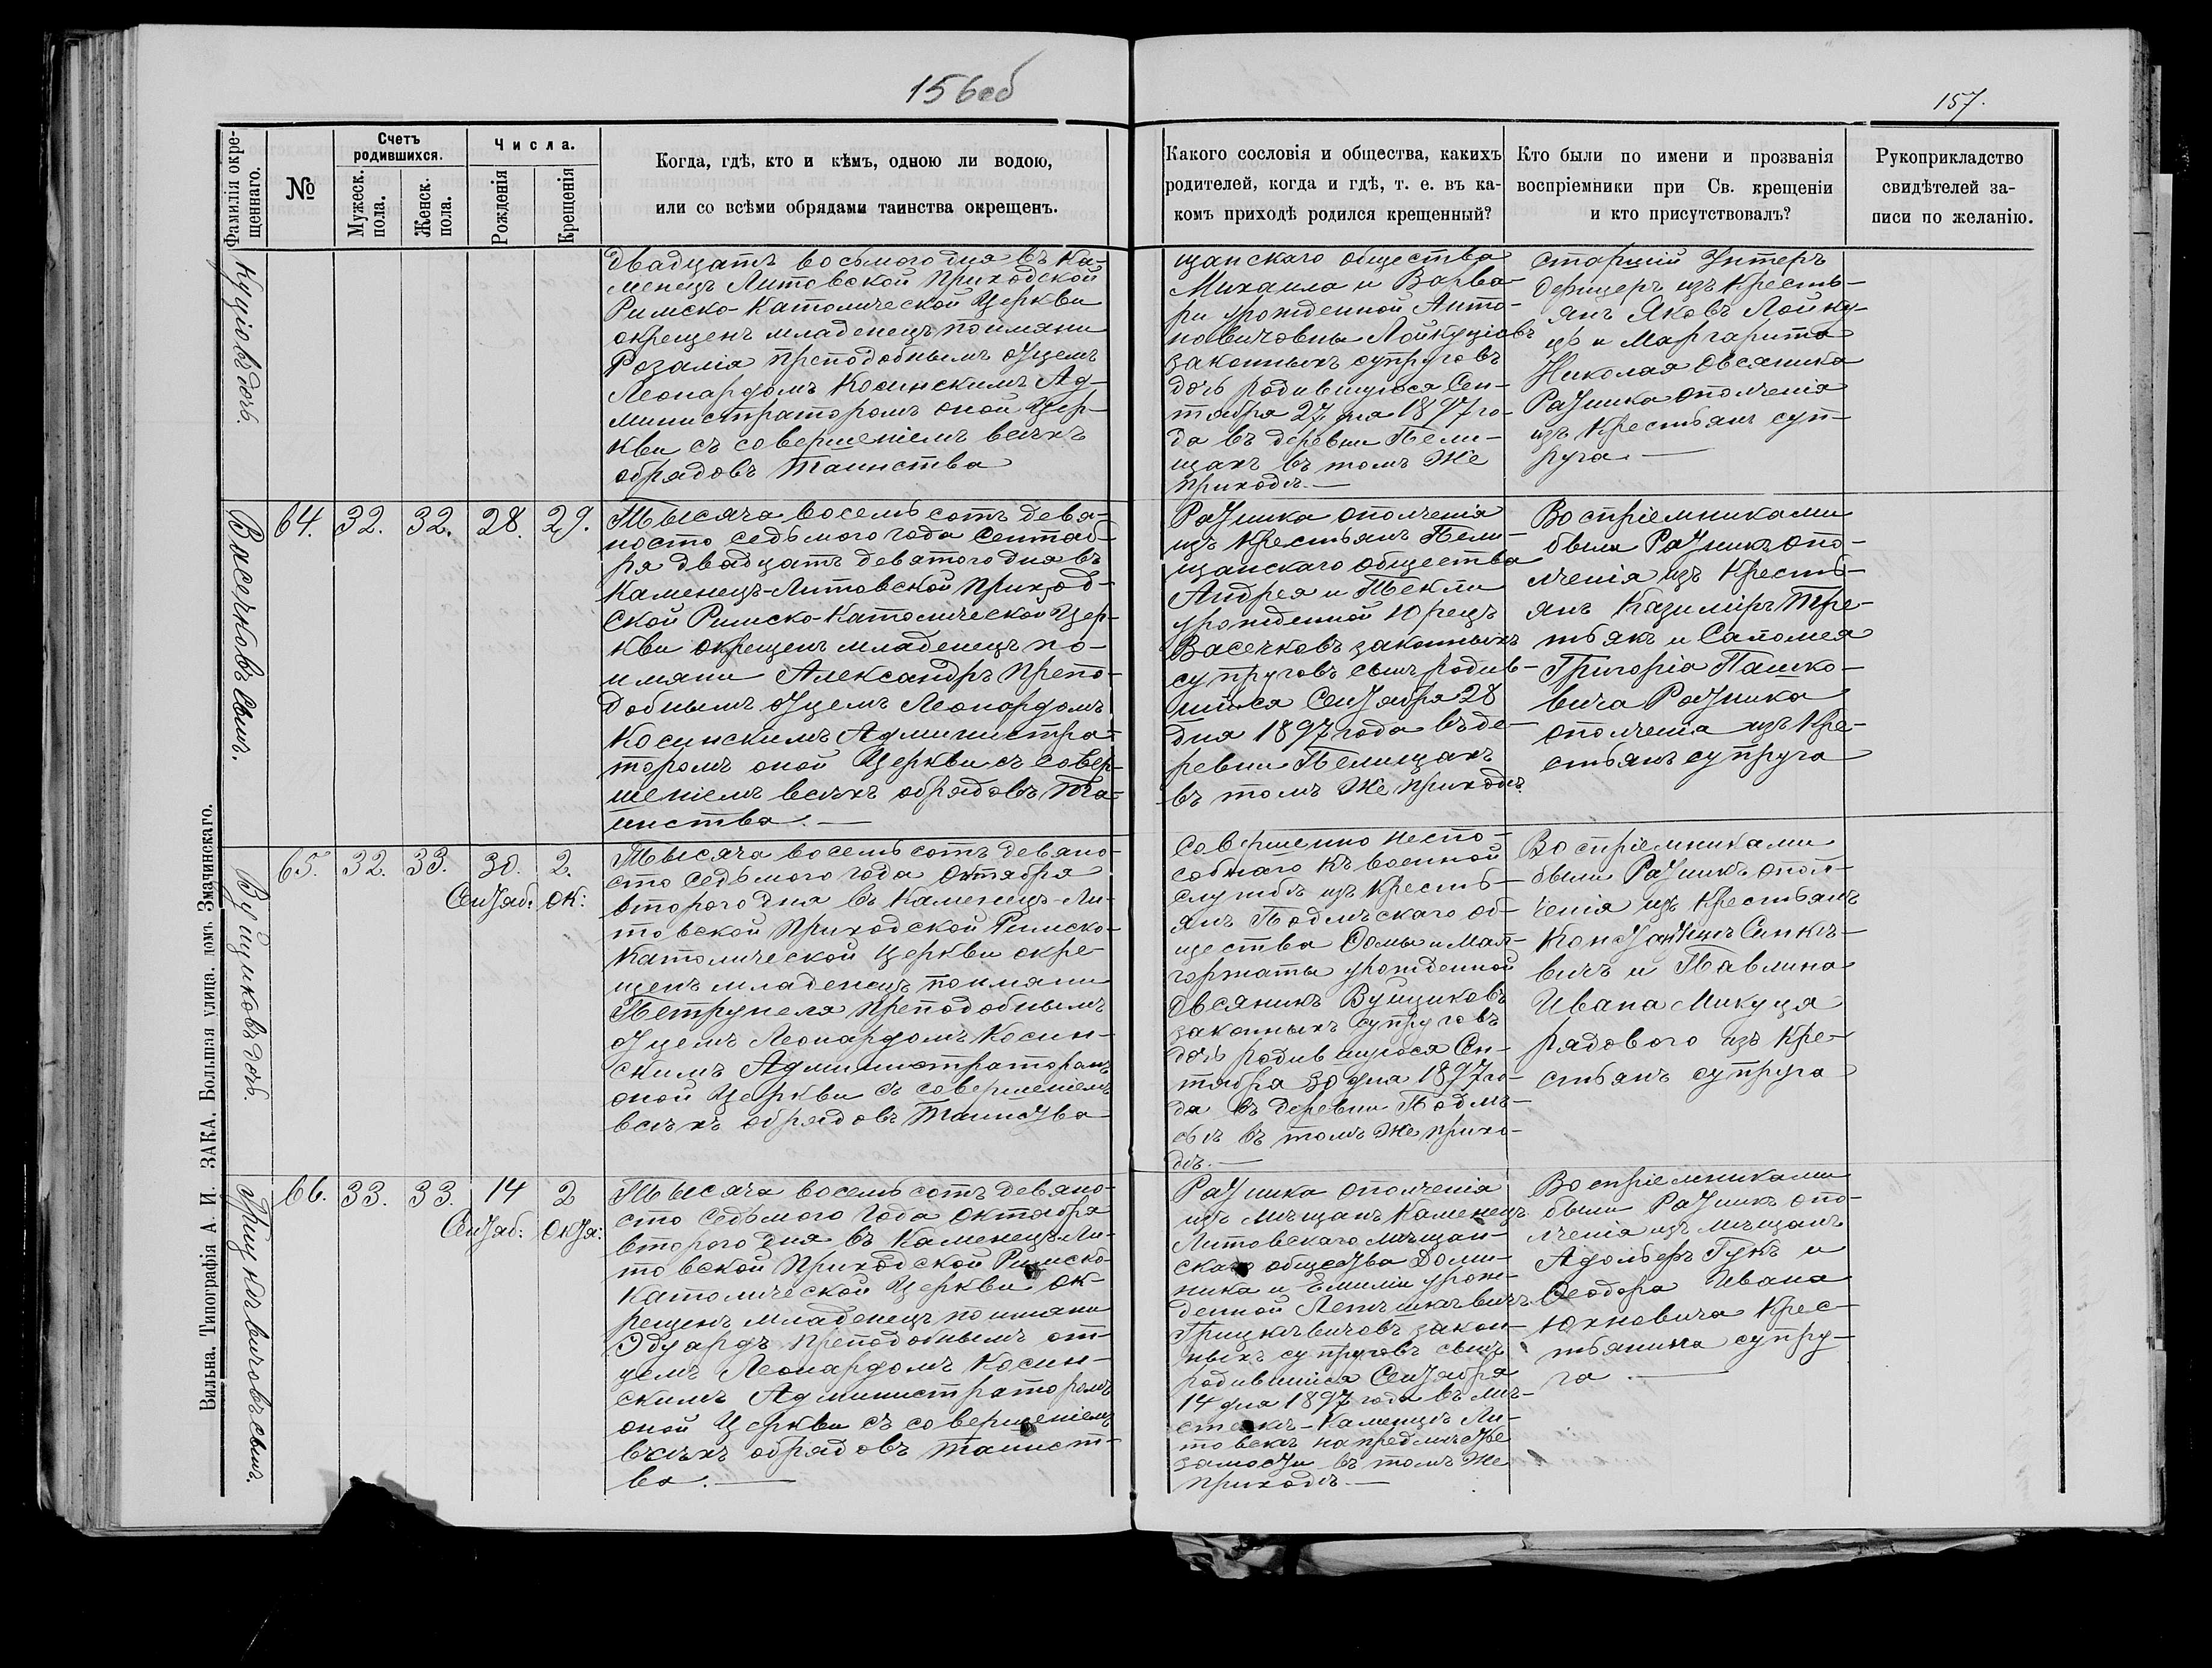 156об
157.
Фамилія окре-
щеннаго.
№
Счетъ
родившихся.
Мужеск.
пола.
Женск.
пола.
Числа.
Рожденія
Крещенія
Когда, гдѣ, кто и кѣмъ, одною ли водою,
или со всѣми обрядами таинства окрещенъ.
Какого сословія и общества, какихъ
родителей, когда и гдѣ, т. е. въ ка-
комъ приходѣ родился крещенный?
Кто были по имени и прозванія
воспріемники при Св. крещеніи
и кто присутствовалъ?
Рукоприкладство
свидѣтелей за-
писи по желанію.
Куціовъ дочь.
двадцать восьмого дня въ Ка-
менецъ Литовской Приходской
Римско-Католической Церкви
окрещенъ младенецъ поимяни
Розалія преподобнымъ Отцемъ
Леонардомъ Косинскимъ Ад-
министраторомъ оной Цер-
кви съ совершеніемъ всѣхъ
обрядовъ Таинства
щанскаго общества
Михаила и Варва-
ры урожденной Анто-
новичовны Лойкуціовъ
законныхъ супруговъ
дочь родившуюся Сен-
тября 27 дня 1897 го-
да въ деревни Пели-
щахъ въ томъ же
приходѣ.—
старшій Унтеръ
Офицеръ изъ кресть-
янъ Яковъ Лойку-
ць и Маргарита
Николая Овсяника
Ратника ополченія
изъ крестьянъ суп-
руга.—
Васечковъ сынъ.
64. 32. 32. 28. 29.
Тысяча восемь сотъ девя-
носто седьмого года Сентяб-
ря двадцать девятого дня въ
Каменецъ-Литовской Приход-
ской Римско-Католической Цер-
кви окрещенъ младенецъ по-
имяни Александръ Препо-
добнымъ Отцемъ Леонардомъ
Косинскимъ Администра-
торомъ оной Церкви съ совер-
шеніемъ всѣхъ обрядовъ Та-
инства.—
Ратника ополченія
изъ крестьянъ Пели-
щанскаго общества
Андрея и Текли
урожденной Юрецъ
Васечковъ законныхъ
супруговъ сынъ родив-
шійся Сентября 28
дня 1897 года въ де-
ревни Пелищахъ
въ томъ же приходѣ.
Воспріемниками
были Ратникъ опо-
лченія изъ кресть-
янъ Казиміръ Тре-
тьякъ и Саломея
Григорія Пашко-
вича Ратника
ополченія изъ кре-
стьянъ супруга
Вуйциковъ дочь.
65. 32. 33. 30. 2.
Сентяб: Ок:
Тысяча восемь сотъ девяно-
сто седьмого года Октября
второго дня въ Каменецъ-Ли-
товской Приходской Римско-
Католической Церкви окре-
щенъ младенецъ поимяни
Петрунеля Преподобнымъ
Отцемъ Леонардомъ Косин-
скимъ Администраторомъ
оной Церкви съ совершеніемъ
всѣхъ обрядовъ Таинства
Совершенно неспо-
собнаго къ военной
службѣ изъ кресть-
янъ Подлѣскаго об-
щества Фомы и Мал-
горжаты урожденной
Овсяникъ Вуйциковъ
законныхъ супруговъ
дочь родившуюся Сен-
тября 30 дня 1897 го-
да въ деревни Подлѣ-
сьѣ въ томъ же прихо-
дѣ.—
Воспріемниками
были Ратникъ опол-
ченія изъ крестьянъ
Константинъ Синкѣ-
вичъ и Павлина
Ивана Микуця
рядового изъ кре-
стьянъ супруга
Грицкѣвичовъ сынъ.
66. 33. 33. 14 2
Сентяб: Октя:
Тысяча восемь сотъ девяно-
сто седьмого года Октября
второго дня въ Каменецъ-Ли-
товской Приходской Римско-
Католической Церкви ок-
рещенъ младенецъ поимяни
Эдуардъ Преподобнымъ от-
цемъ Леонардомъ Косин-
скимъ Администраторомъ
оной Церкви съ совершеніемъ
всѣхъ обрядовъ таинст-
ва.—
Ратника ополченія
изъ мѣщанъ Каменецъ
Литовскаго мѣщан-
скаго общества Доми-
ника и Емиліи урож-
денной Летѣшкѣвичъ
Грицкѣвичовъ закон-
ныхъ супруговъ сынъ
родившійся Сентября
14 дня 1897 года въ мѣ-
стечкѣ-Каменцѣ Ли-
товскѣ на предмѣстье
замосты въ томъ же
приходѣ.—
Воспріемниками
были Ратникъ опо-
лченія изъ мѣщанъ
Адольфъ Гукъ и
Феодора Ивана
Юхновича крес-
тьянина супру-
га.—
Вильна. Типографія А. И. ЗАКА. Большая улица. домъ Змачинскаго.